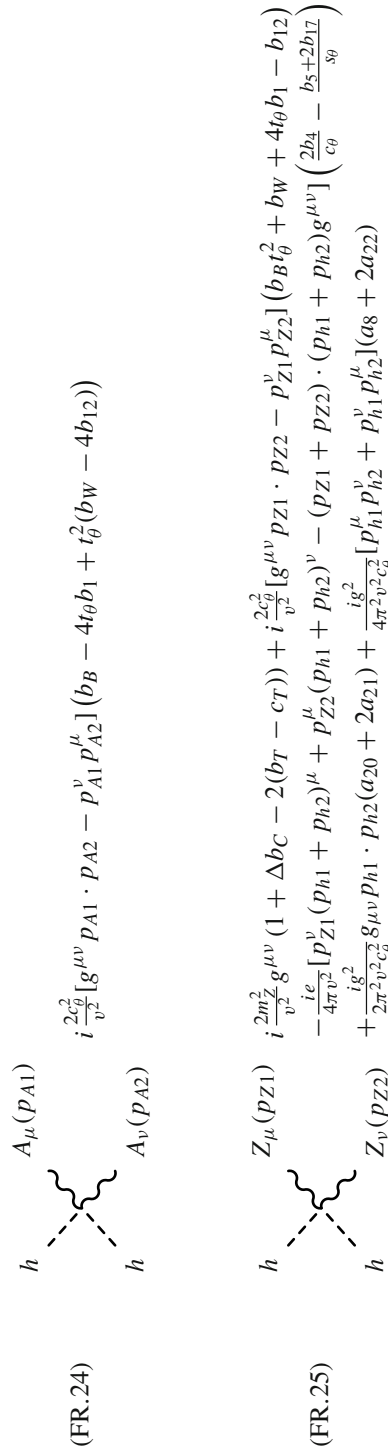 (FR.24)
h
A_μ(p_{A1})
h
A_ν(p_{A2})
i \frac{2c_θ^2}{v^2} [g^{μν} p_{A1} · p_{A2} − p_{A1}^ν p_{A2}^μ] (b_B − 4t_θ b_1 + t_θ^2 (b_W − 4b_{12}))
(FR.25)
h
Z_μ(p_{Z1})
h
Z_ν(p_{Z2})
i \frac{2m_Z^2}{v^2} g^{μν} (1 + Δb_C − 2(b_T − c_T)) + i \frac{2c_θ^2}{v^2} [g^{μν} p_{Z1} · p_{Z2} − p_{Z1}^ν p_{Z2}^μ] (b_B t_θ^2 + b_W + 4t_θ b_1 − b_{12})
− \frac{ie}{4πv^2} [p_{Z1}^ν (p_{h1} + p_{h2})^μ + p_{Z2}^μ (p_{h1} + p_{h2})^ν − (p_{Z1} + p_{Z2}) · (p_{h1} + p_{h2}) g^{μν}] (\frac{2b_4}{c_θ} − \frac{b_5 + 2b_{17}}{s_θ})
+ \frac{ig^2}{2π^2 v^2 c_θ^2} g_{μν} p_{h1} · p_{h2} (a_{20} + 2a_{21}) + \frac{ig^2}{4π^2 v^2 c_θ^2} [p_{h1}^μ p_{h2}^ν + p_{h1}^ν p_{h2}^μ] (a_8 + 2a_{22})